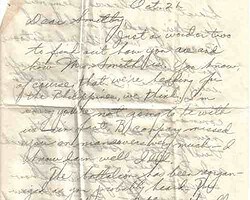 Oct. 26
Dear Smithy
Just a word or two
to find out how you are and
how Mrs. Smith is. You know
of course that we're leaving for
the Philippines, we think, I'm
sorry you're not going to be with
us. Company missed
you on maneuvers very much. I
have been well
The battalion has been reorgan-
ized as you probably heard. My